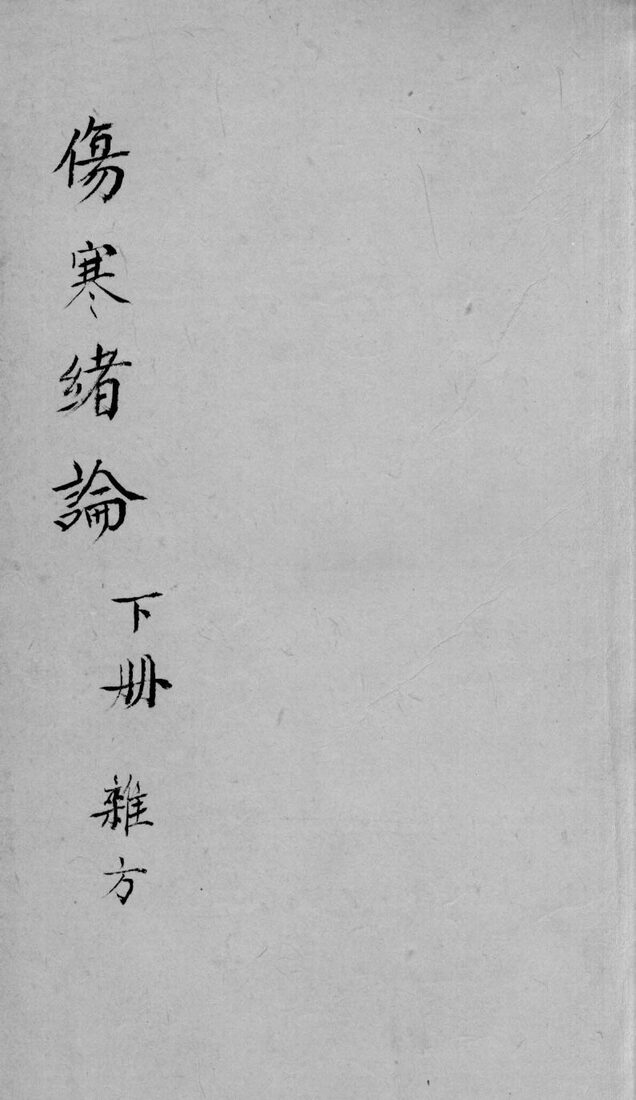 傷寒緒論
下册 雜方